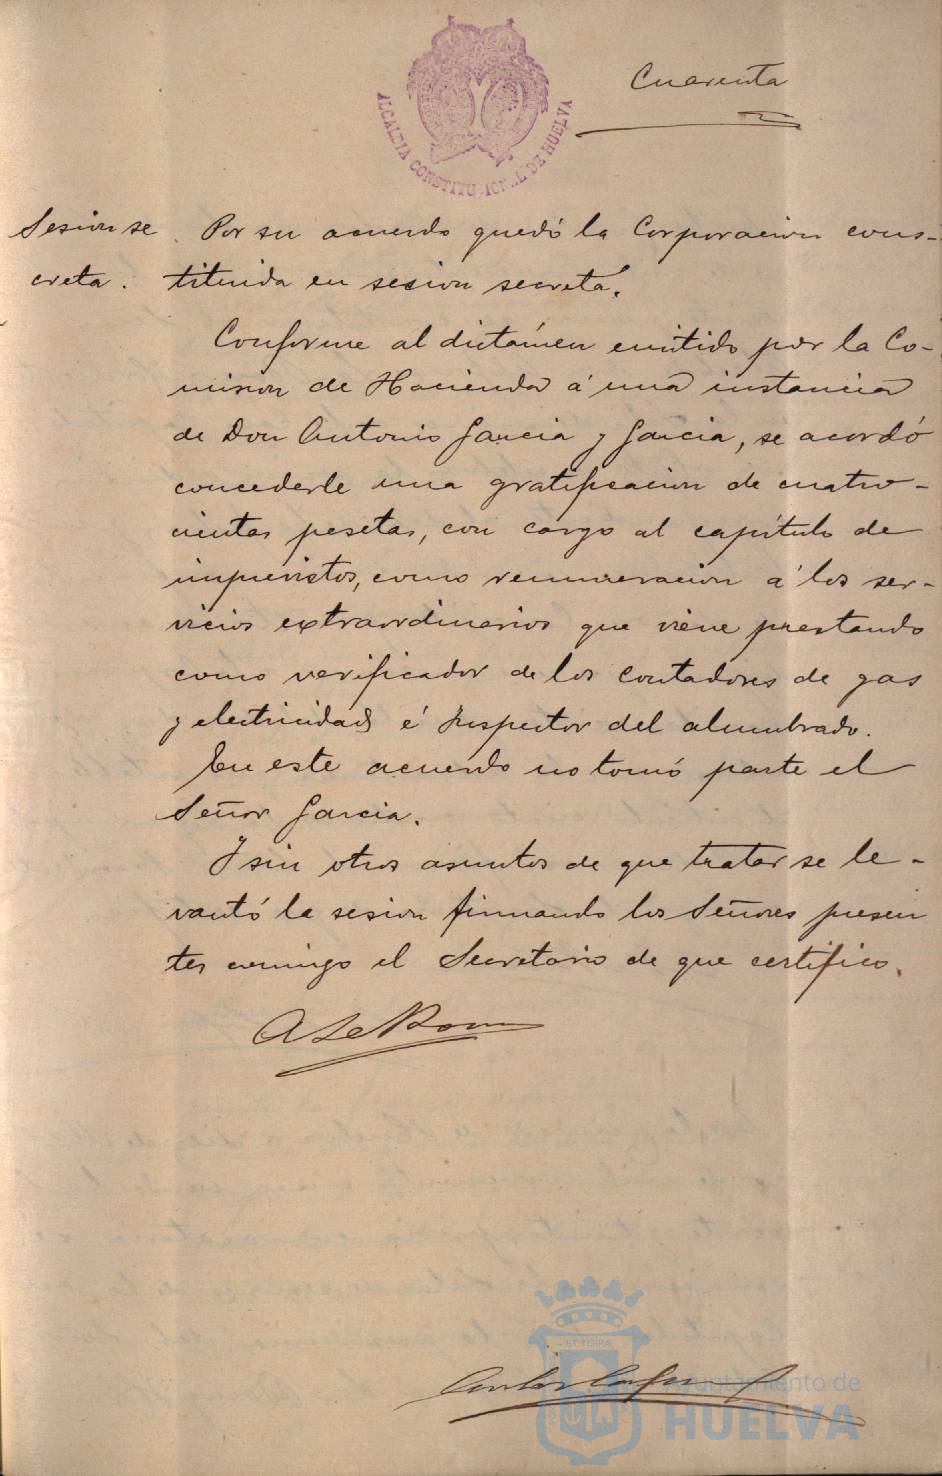 ALCALDIA CONSTITUCIONAL DE HUELVA
Cuarenta
Sesion se
creta.
Por su acuerdo quedó la Corporacion cons-
tituida en sesion secreta.
Conforme al dictámen emitido por la Co-
mision de Hacienda á una instancia
de Don Antonio Garcia y Garcia, se acordó
concederle una gratificacion de cuatro-
cientas pesetas, con cargo al capítulo de
imprevistos, como remuneracion á los ser-
vicios extraordinarios que viene prestando
como verificador de los contadores de gas
y electricidad é Inspector del alumbrado.
En este acuerdo no tomó parte el
Señor Garcia.
Y sin otros asuntos de que tratar se le-
vantó la sesion firmando los Señores presen
tes conmigo el Secretario de que certifico.
Ayuntamiento de
HUELVA